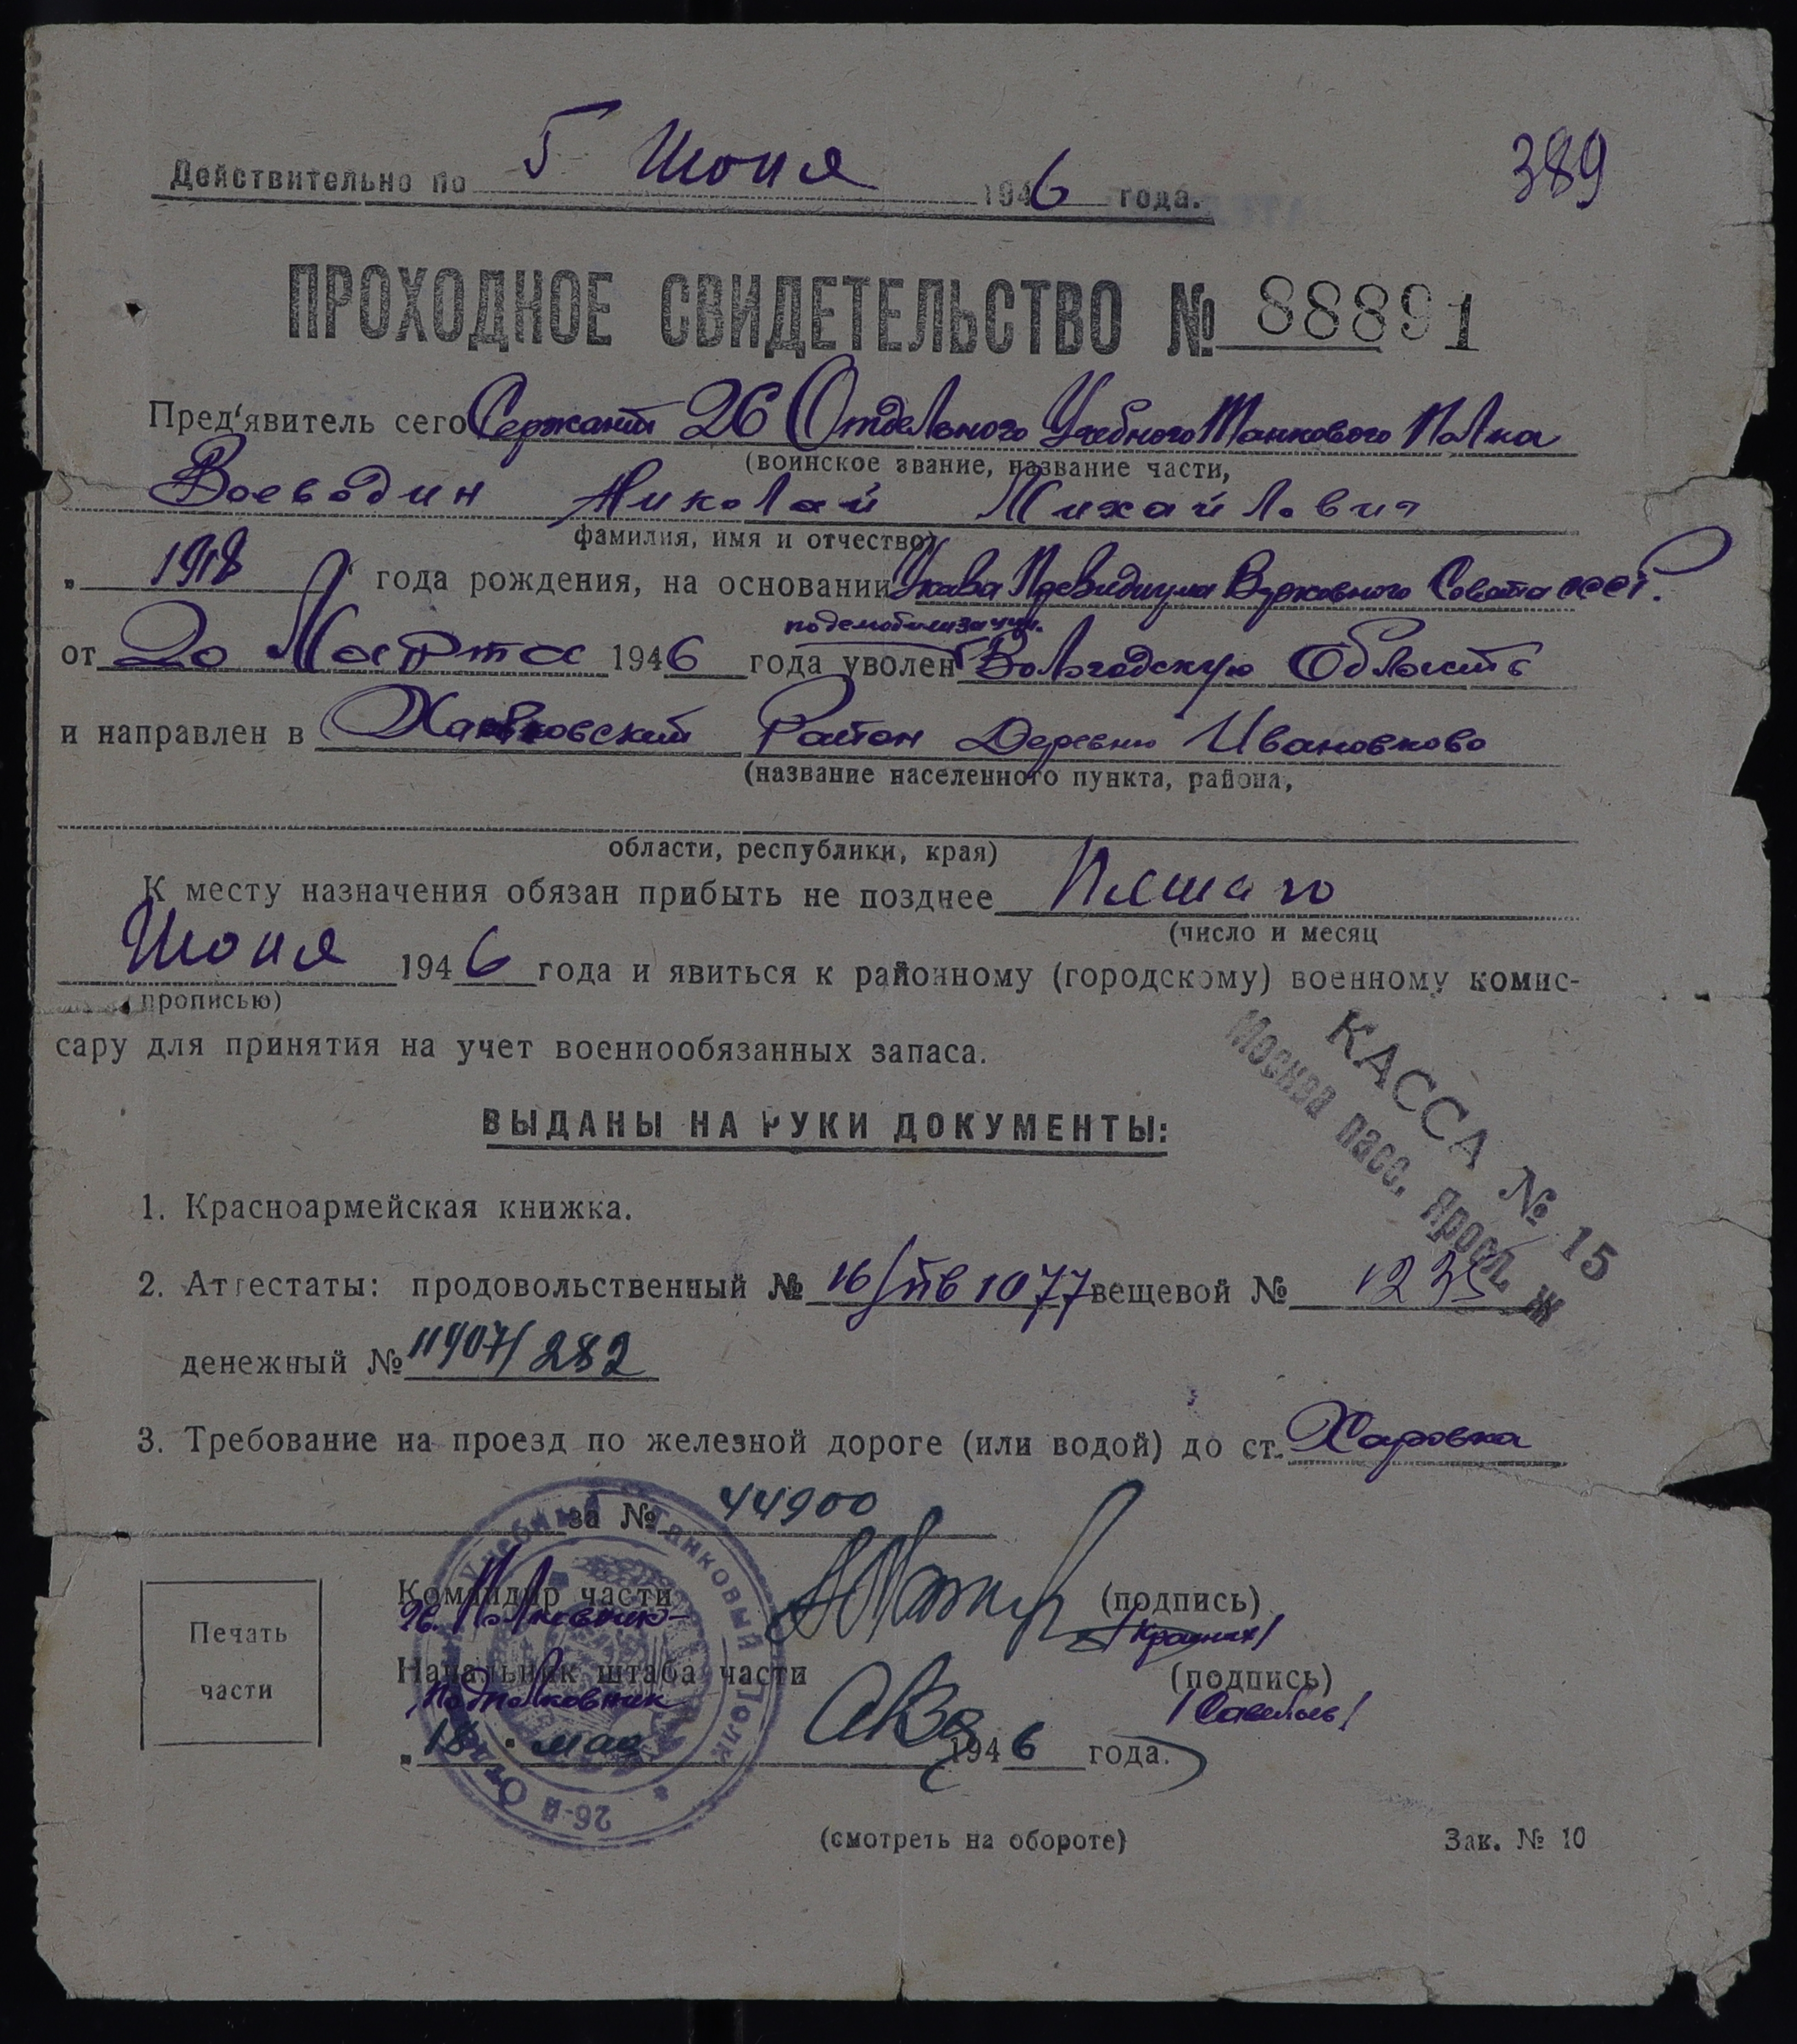 389
Действительно по 5 Июня 1946 года.
ПРОХОДНОЕ СВИДЕТЕЛЬСТВО № 88891
Пред‘явитель сего Сержант 26 Отдельного Учебного Танкового Полка
(воинское звание, название части,
Воеводин Николай Михайлович
фамилия, имя и отчество)
„ 1918 " года рождения, на основании Указа Президиума Верховного Совета СССР.
подемобилизации.
от 20 Марта 1946 года уволен Вологодскую Область
и направлен в Район Деревню Ивановково
(название населенного пункта, района,
области, республики, края)
К месту назначения обязан прибыть не позднее Пятого
(число и месяц
Июня 1946 года и явиться к районному (городскому) военному комис-
прописью)
сару для принятия на учет военнообязанных запаса.
КАССА № 15
Москва пасс. Яросл. ж
ВЫДАНЫ НА РУКИ ДОКУМЕНТЫ:
1. Красноармейская книжка.
2. Аттестаты: продовольственный № 16/пв 1077 вещевой № 1235
денежный № 11907/282
3. Требование на проезд по железной дороге (или водой) до ст. Харовка
за № 44900
Командир части (подпись)
Гв. Полковник
Печать
части
Начальник штаба части (подпись)
Подполковник /Савельев/
„18" мая 1946 года.
26-й Отд. Учебный Танковый Полк
(смотреть на обороте) Зак. № 10